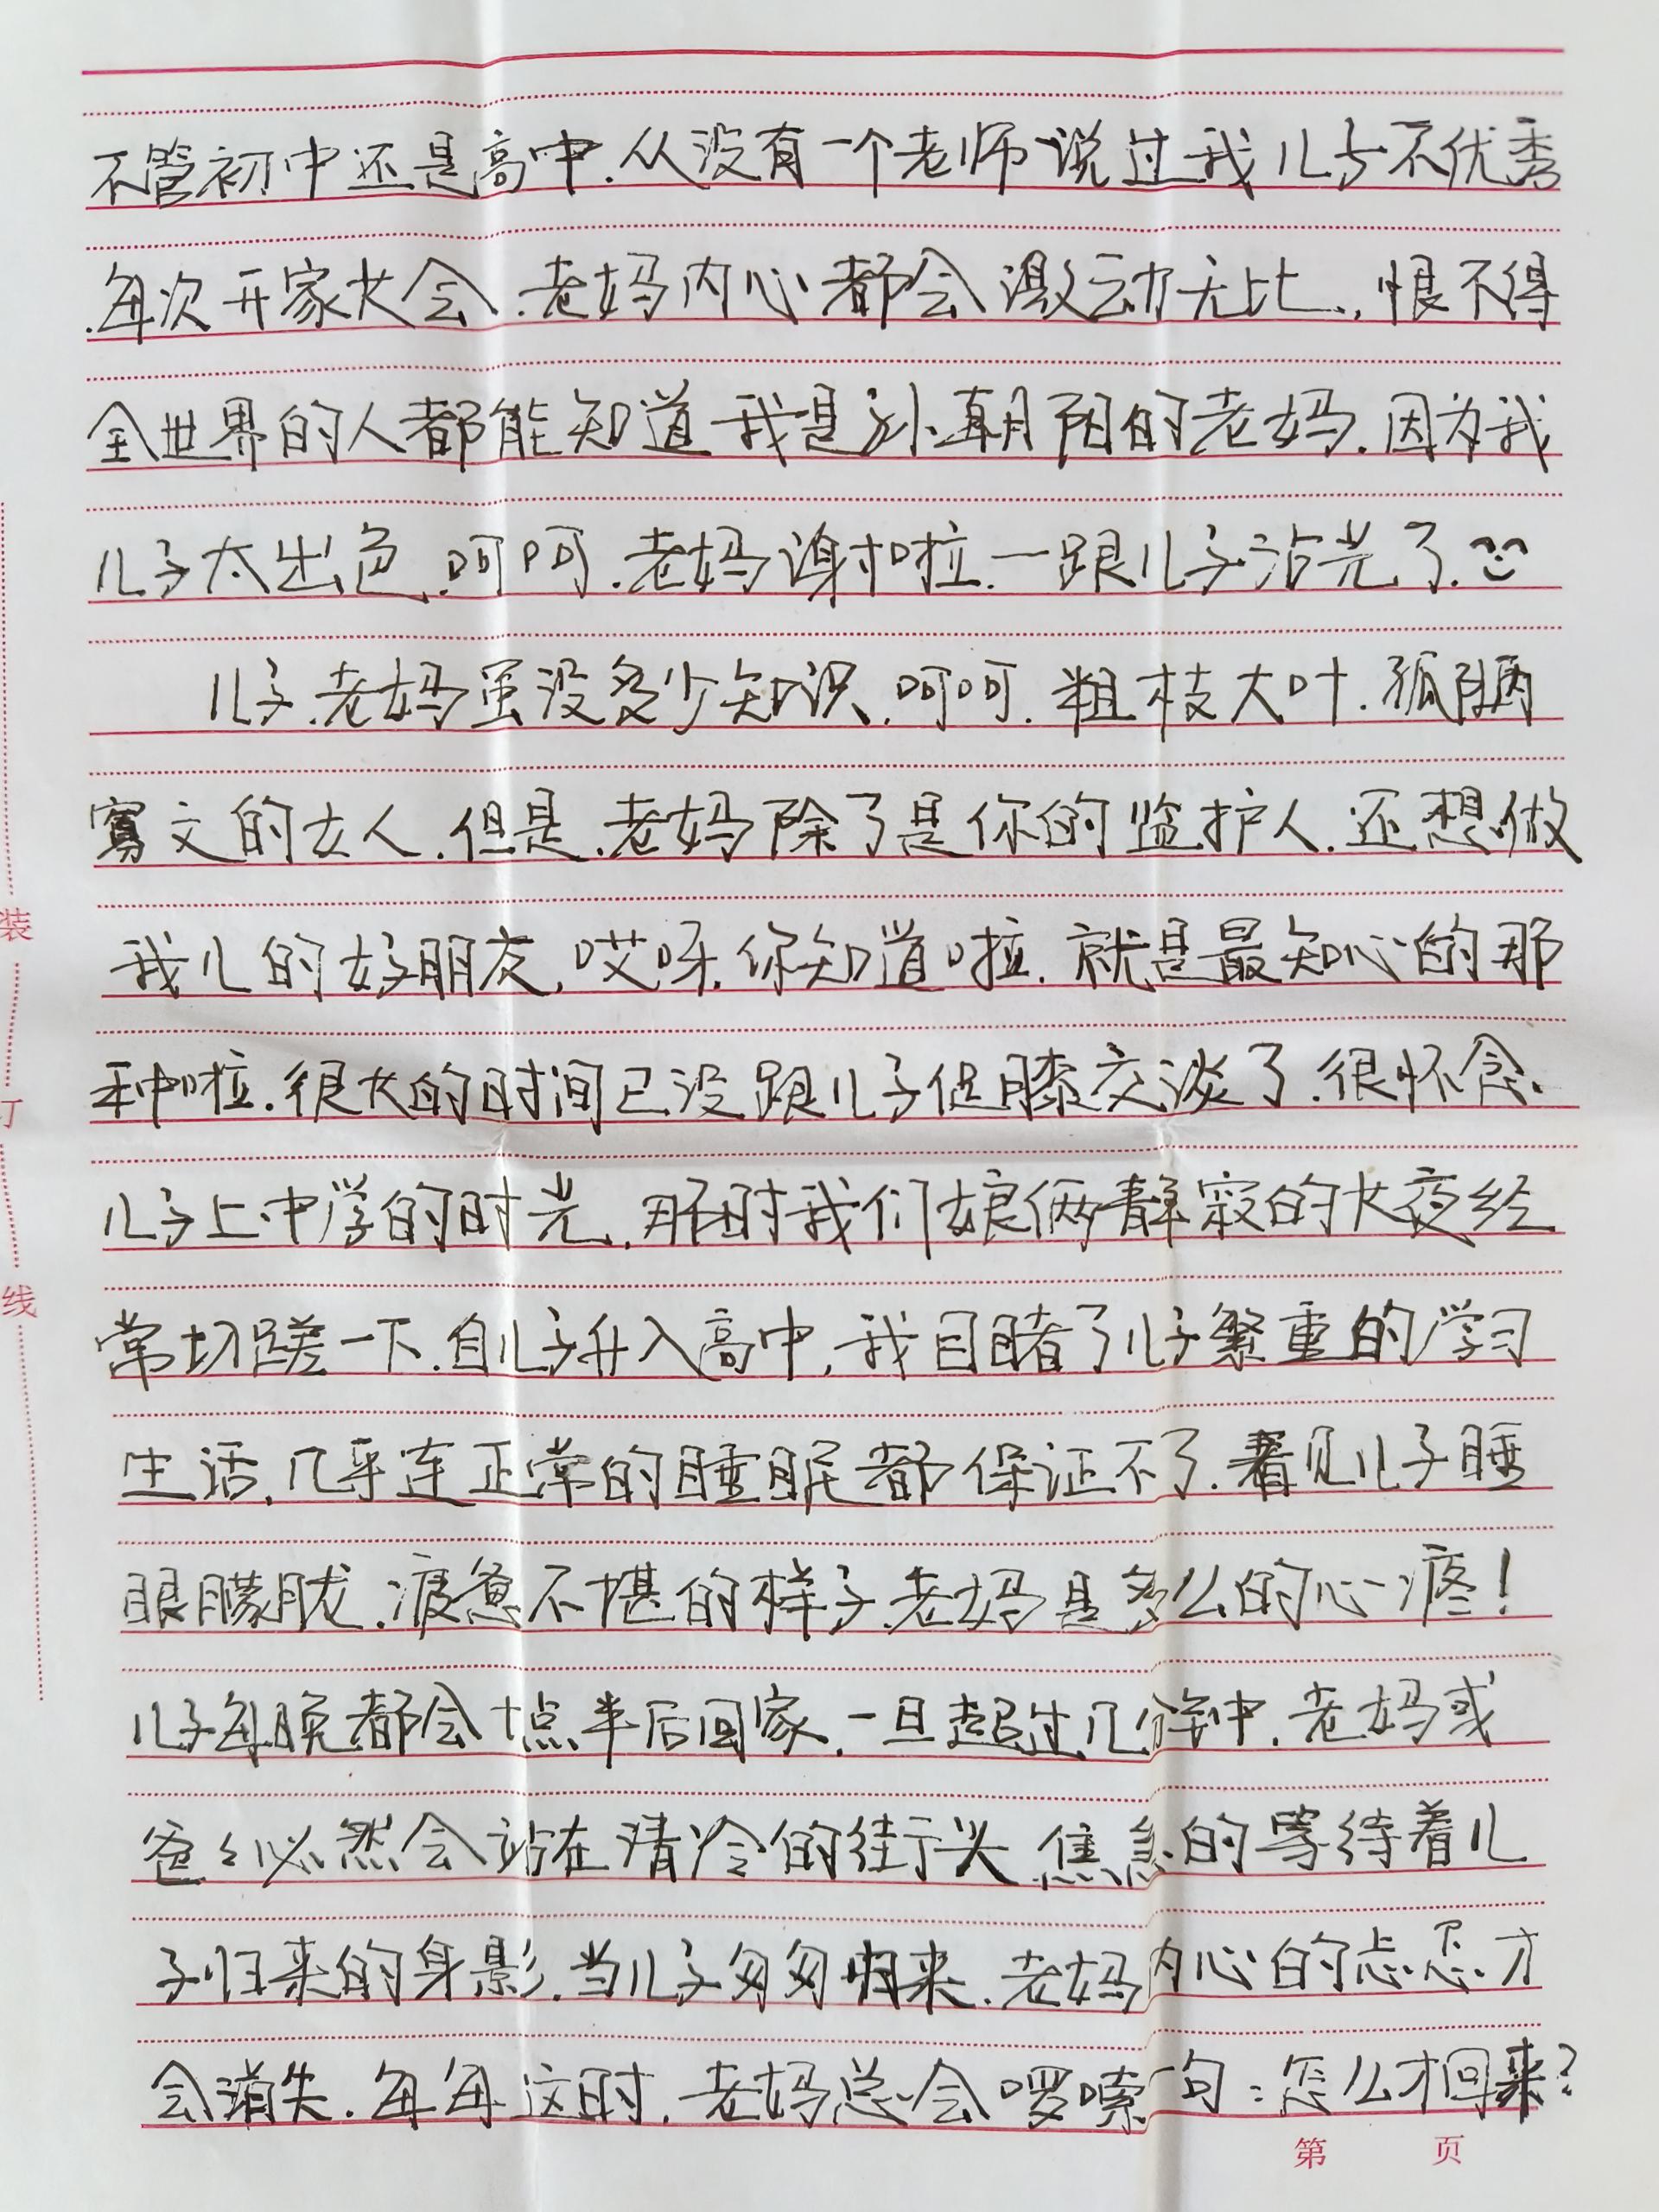 不管初中还是高中.从没有一个老师说过我儿子不优秀
.每次开家长会.老妈内心都会激动无比.,恨不得
全世界的人都能知道我是孙朝阳的老妈.因为我
儿子太出色.呵呵.老妈谢啦.一跟儿子沾光了.
儿子.老妈虽没多少知识.呵呵.粗枝大叶.孤陋
寡文的女人.但是.老妈除了是你的监护人.还想做
我儿的好朋友,哎呀.你知道啦.就是最知心的那
种啦.很长的时间已没跟儿子促膝交谈了.很怀念.
儿子上中学的时光.那时我们娘俩静寂的长夜经
常切蹉一下.自儿子升入高中,我目睹了儿子繁重的学习
生活.几乎连正常的睡眠都保证不了.看见儿子睡
眼朦胧.疲惫不堪的样子.老妈是多么的心疼!
儿子每晚都会十点半后回家.一旦超过几分钟.老妈或
爸々必然会站在清冷的街头.焦急的等待着儿
子归来的身影.当儿子匆匆归来.老妈内心的忐忑才
会消失.每每这时.老妈总会啰嗦一句:怎么才回来?
装
订
线
第 页